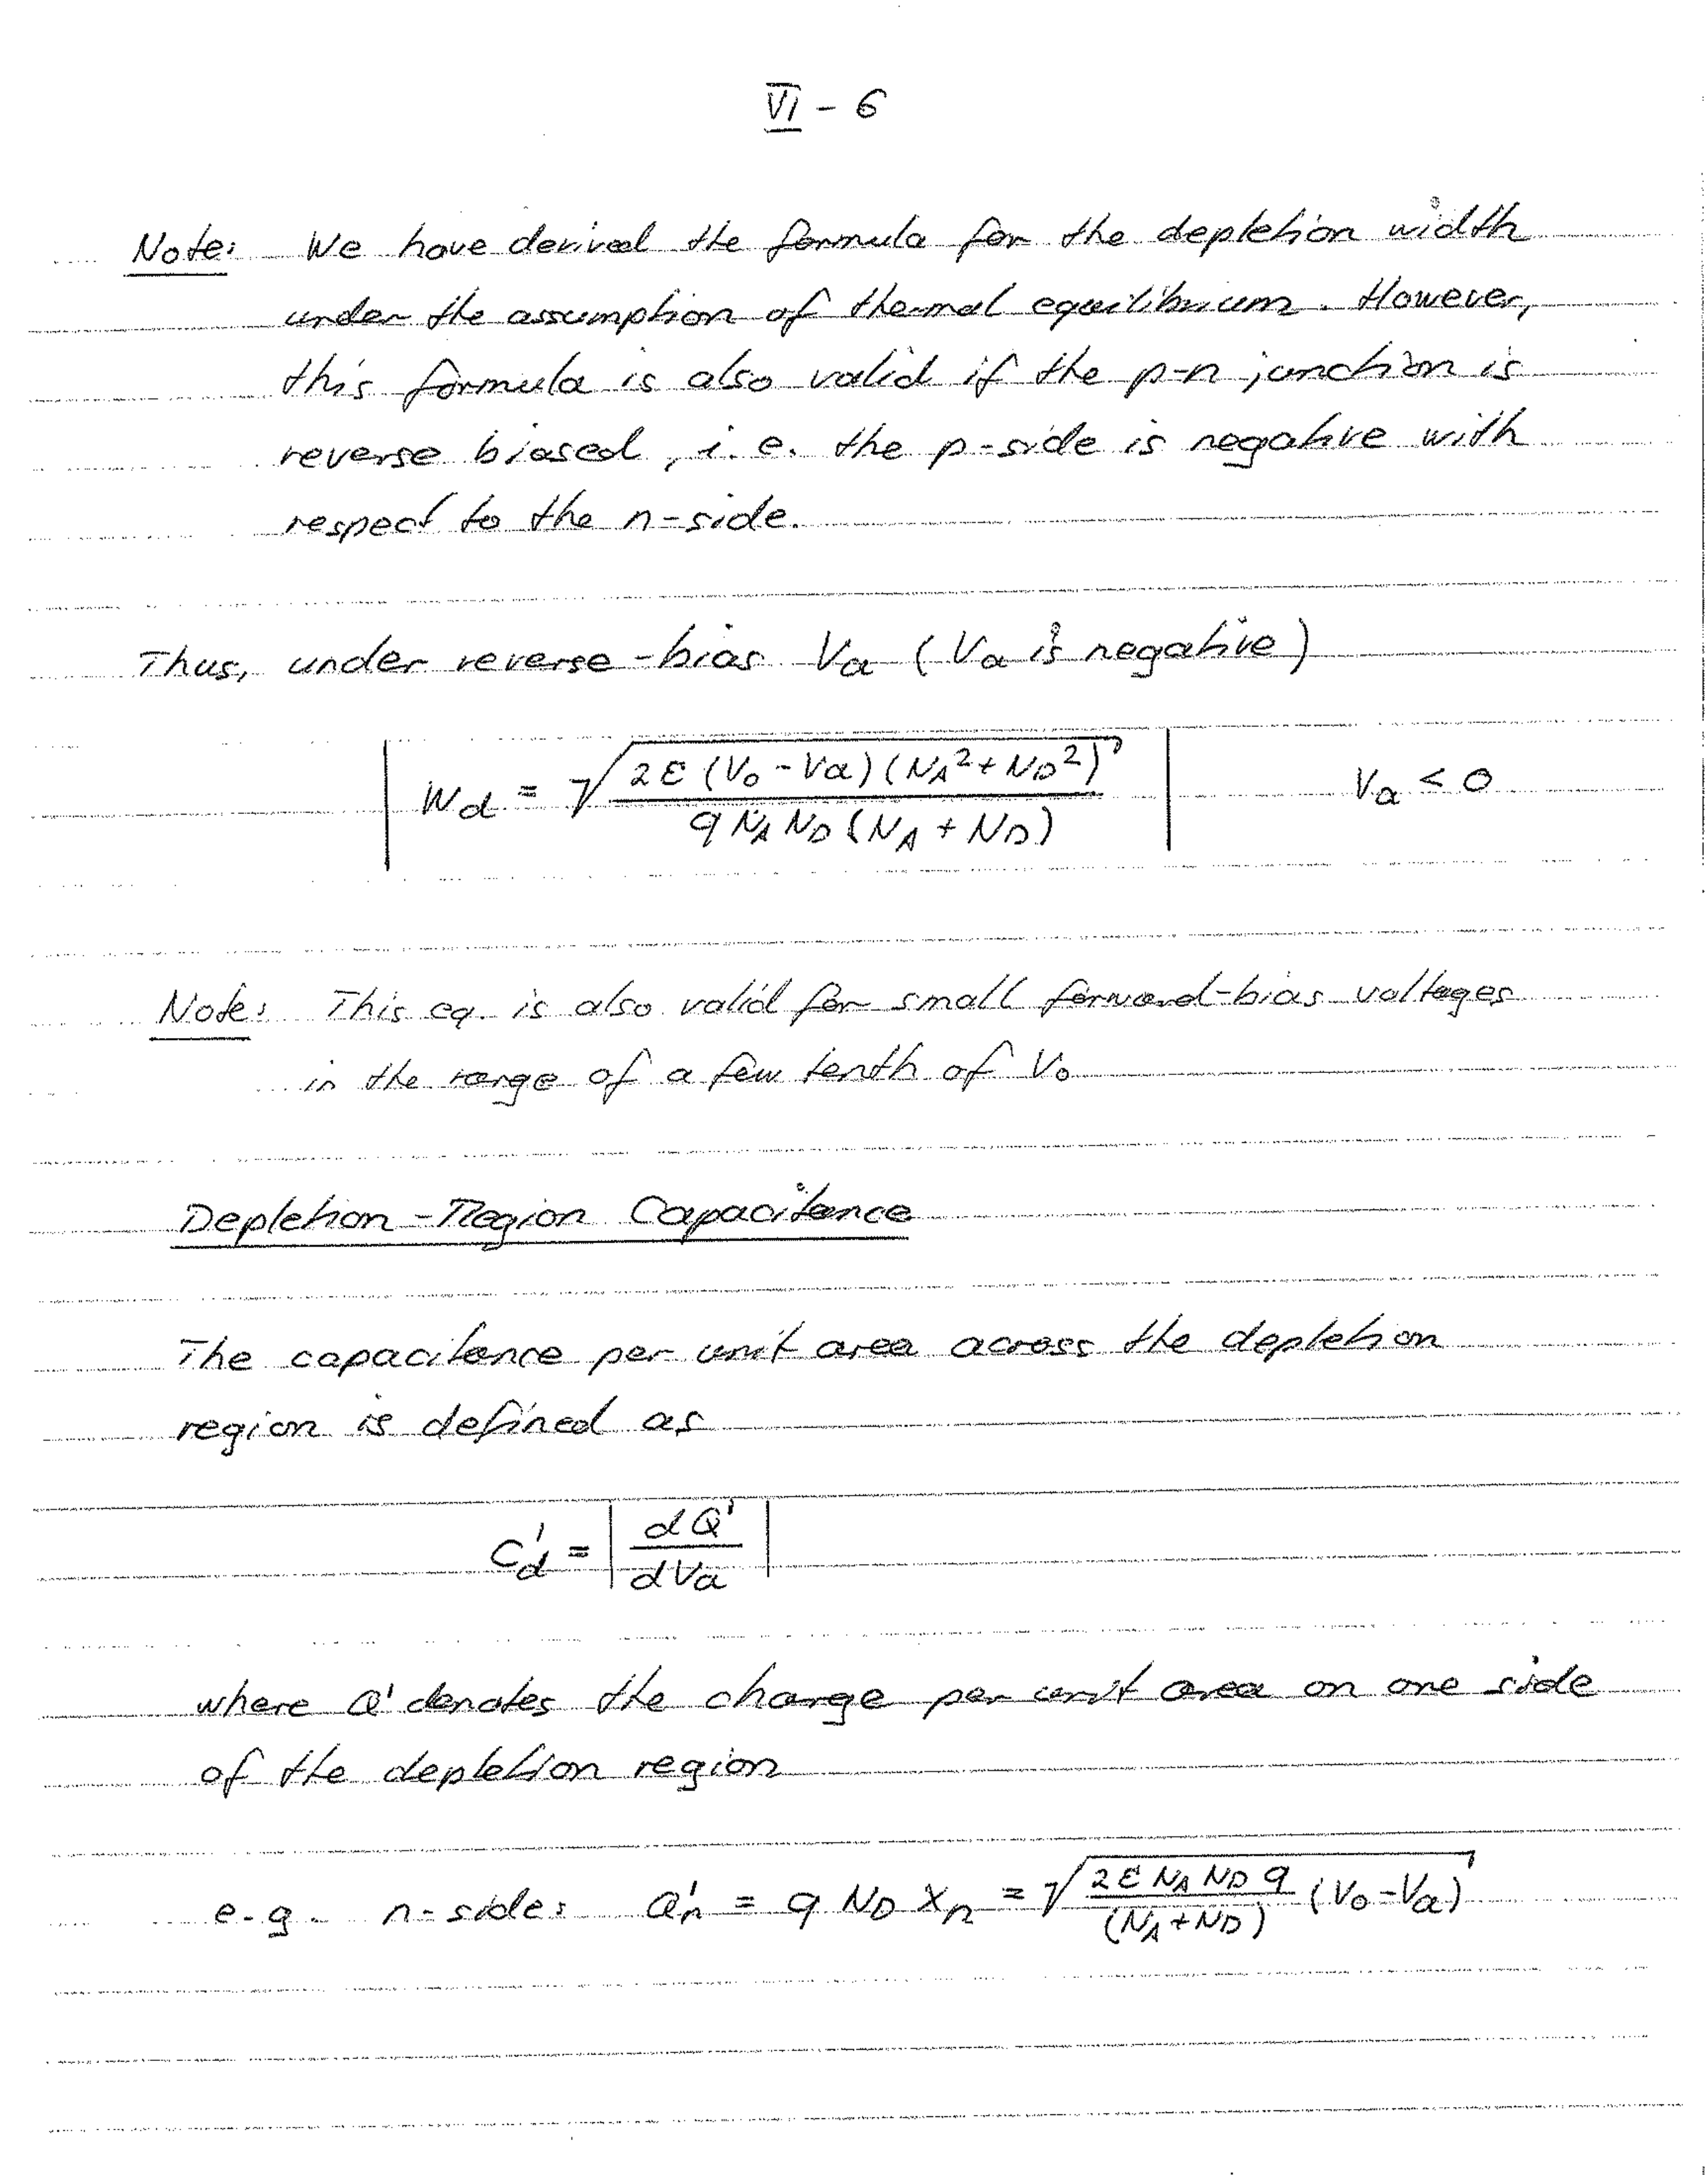 VI - 6
Note: We have derived the formula for the depletion width
under the assumption of thermal equilibrium. However,
this formula is also valid if the p-n junction is
reverse biased, i.e. the p-side is negative with
respect to the n-side.
Thus, under reverse-bias Va (Va is negative)
Wd = √(2ε (V₀ - Va) (N_A² + N_D²) / q N_A N_D (N_A + N_D)) Va < 0
Note: This eq. is also valid for small forward-bias voltages
in the range of a few tenth of V₀
Depletion-Region Capacitance
The capacitance per unit area across the depletion
region is defined as
C'd = | dQ' / dVa |
where Q' denotes the charge per unit area on one side
of the depletion region
e.g. n-side: Q'n = q N_D Xn = √(2ε N_A N_D q / (N_A + N_D) (V₀ - Va))